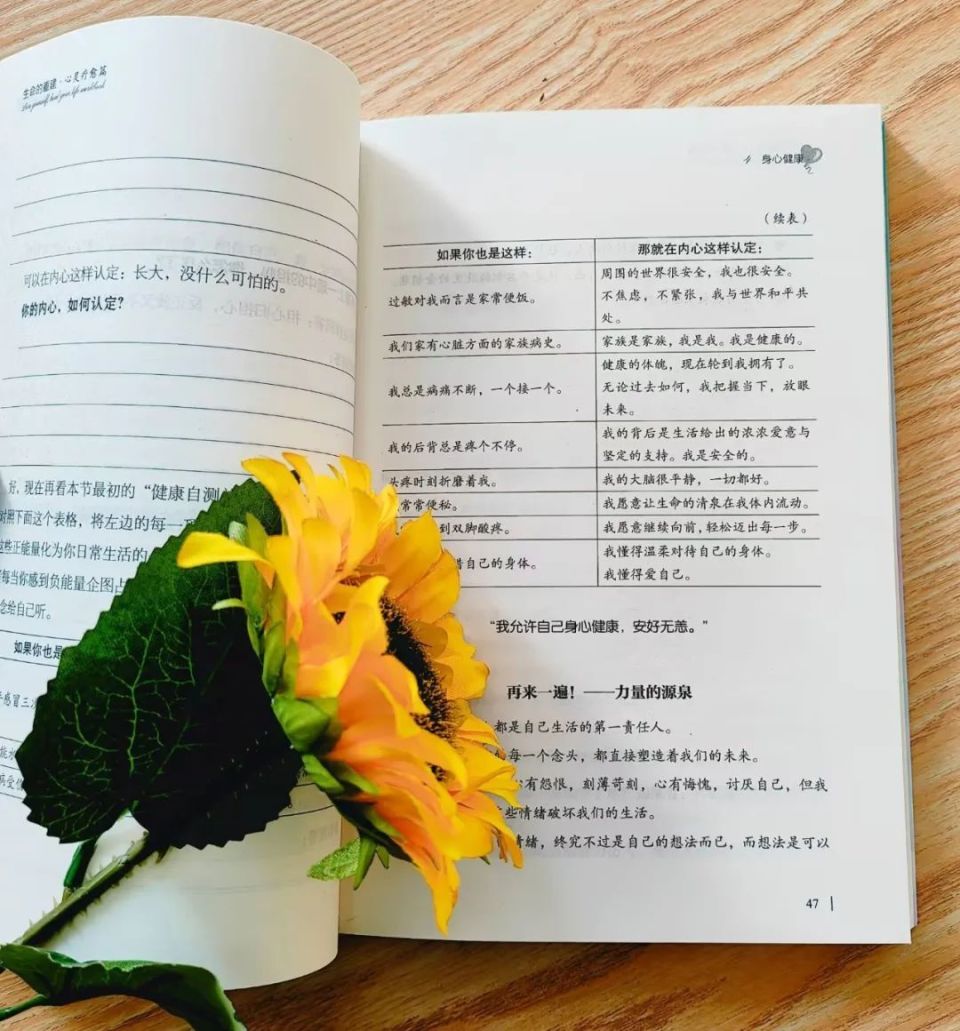 生命的重建·心灵疗愈篇
Love yourself, heal your life workbook
可以在内心这样认定：长大，没什么可怕的。
你的内心，如何认定？
好，现在再看本节最初的“健康自测
对照下面这个表格，将左边的每一
这些正能量化为你日常生活的
每当你感到负能量企图占
念给自己听。
如果你也是
感冒三次
身心健康
（续表）
如果你也是这样：
那就在内心这样认定：
过敏对我而言是家常便饭。
周围的世界很安全，我也很安全。
不焦虑，不紧张，我与世界和平共
处。
我们家有心脏方面的家族病史。
家族是家族，我是我。我是健康的。
我总是病痛不断，一个接一个。
健康的体魄，现在轮到我拥有了。
无论过去如何，我把握当下，放眼
未来。
我的后背总是疼个不停。
我的背后是生活给出的浓浓爱意与
坚定的支持。我是安全的。
头疼时刻折磨着我。
我的大脑很平静，一切都好。
常常便秘。
我愿意让生命的清泉在我体内流动。
到双脚酸疼。
我愿意继续向前，轻松迈出每一步。
自己的身体。
我懂得温柔对待自己的身体。
我懂得爱自己。
“我允许自己身心健康，安好无恙。”
再来一遍！——力量的源泉
都是自己生活的第一责任人。
每一个念头，都直接塑造着我们的未来。
有怨恨，刻薄苛刻，心有悔愧，讨厌自己，但我
些情绪破坏我们的生活。
情绪，终究不过是自己的想法而已，而想法是可以
47